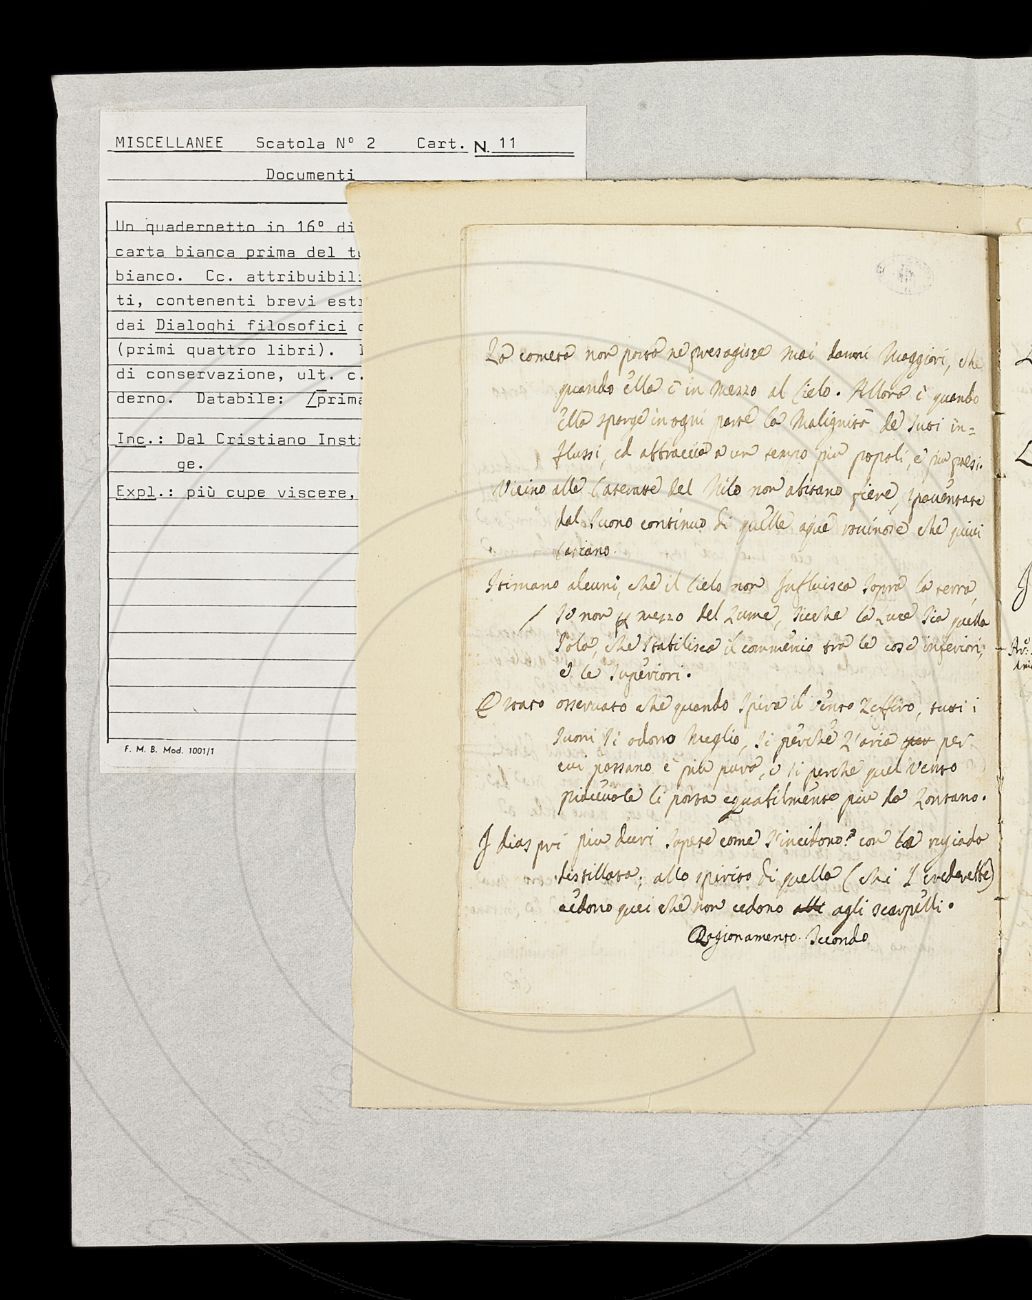 MISCELLANEE Scatola N° 2 Cart. N. 11
Documenti
Un quadernetto in 16° di
carta bianca prima del t
bianco. Cc. attribuibil
ti, contenenti brevi est
dai Dialoghi filosofici
(primi quattro libri).
di conservazione, ult. c.
derno. Databile: /prima
Inc.: Dal Cristiano Inst
ge.
Expl.: più cupe viscere,
F. M. B. Mod. 1001/1
La cometa non porta ne presagisce mai danni Maggiori, che
quando ella è in Mezzo al Cielo. Allora è quando
ella sparge in ogni parte la Malignità de suoi in=
flussi, ed abbraccia a un tempo più popoli, e più paesi.
Vicino alle Cateratte del Nilo non abitano fiere, spaventate
dal suono continuo di quelle aque ruinose che quivi
cascano.
Stimano alcuni, che il Cielo non Influisca sopra la terra,
se non p mezzo del Lume, sicche la Luce sia quella
sola, che stabilisca il commercio tra le cose inferiori,
e le superiori.
È stato osservato che quando spira il vento Zeffiro, tutti i
suoni si odono Meglio, si perchè l'aria per per
cui passano è più pura, e si perche quel vento
piacevole li porta egualmente più da Lontano.
I diaspri più duri sapete come s'incidono? con la rugiada
destillata; allo spirito di quella (chi 'l crederebbe)
cedono quei che non cedono alli agli scarpelli.
Ragionamento Secondo